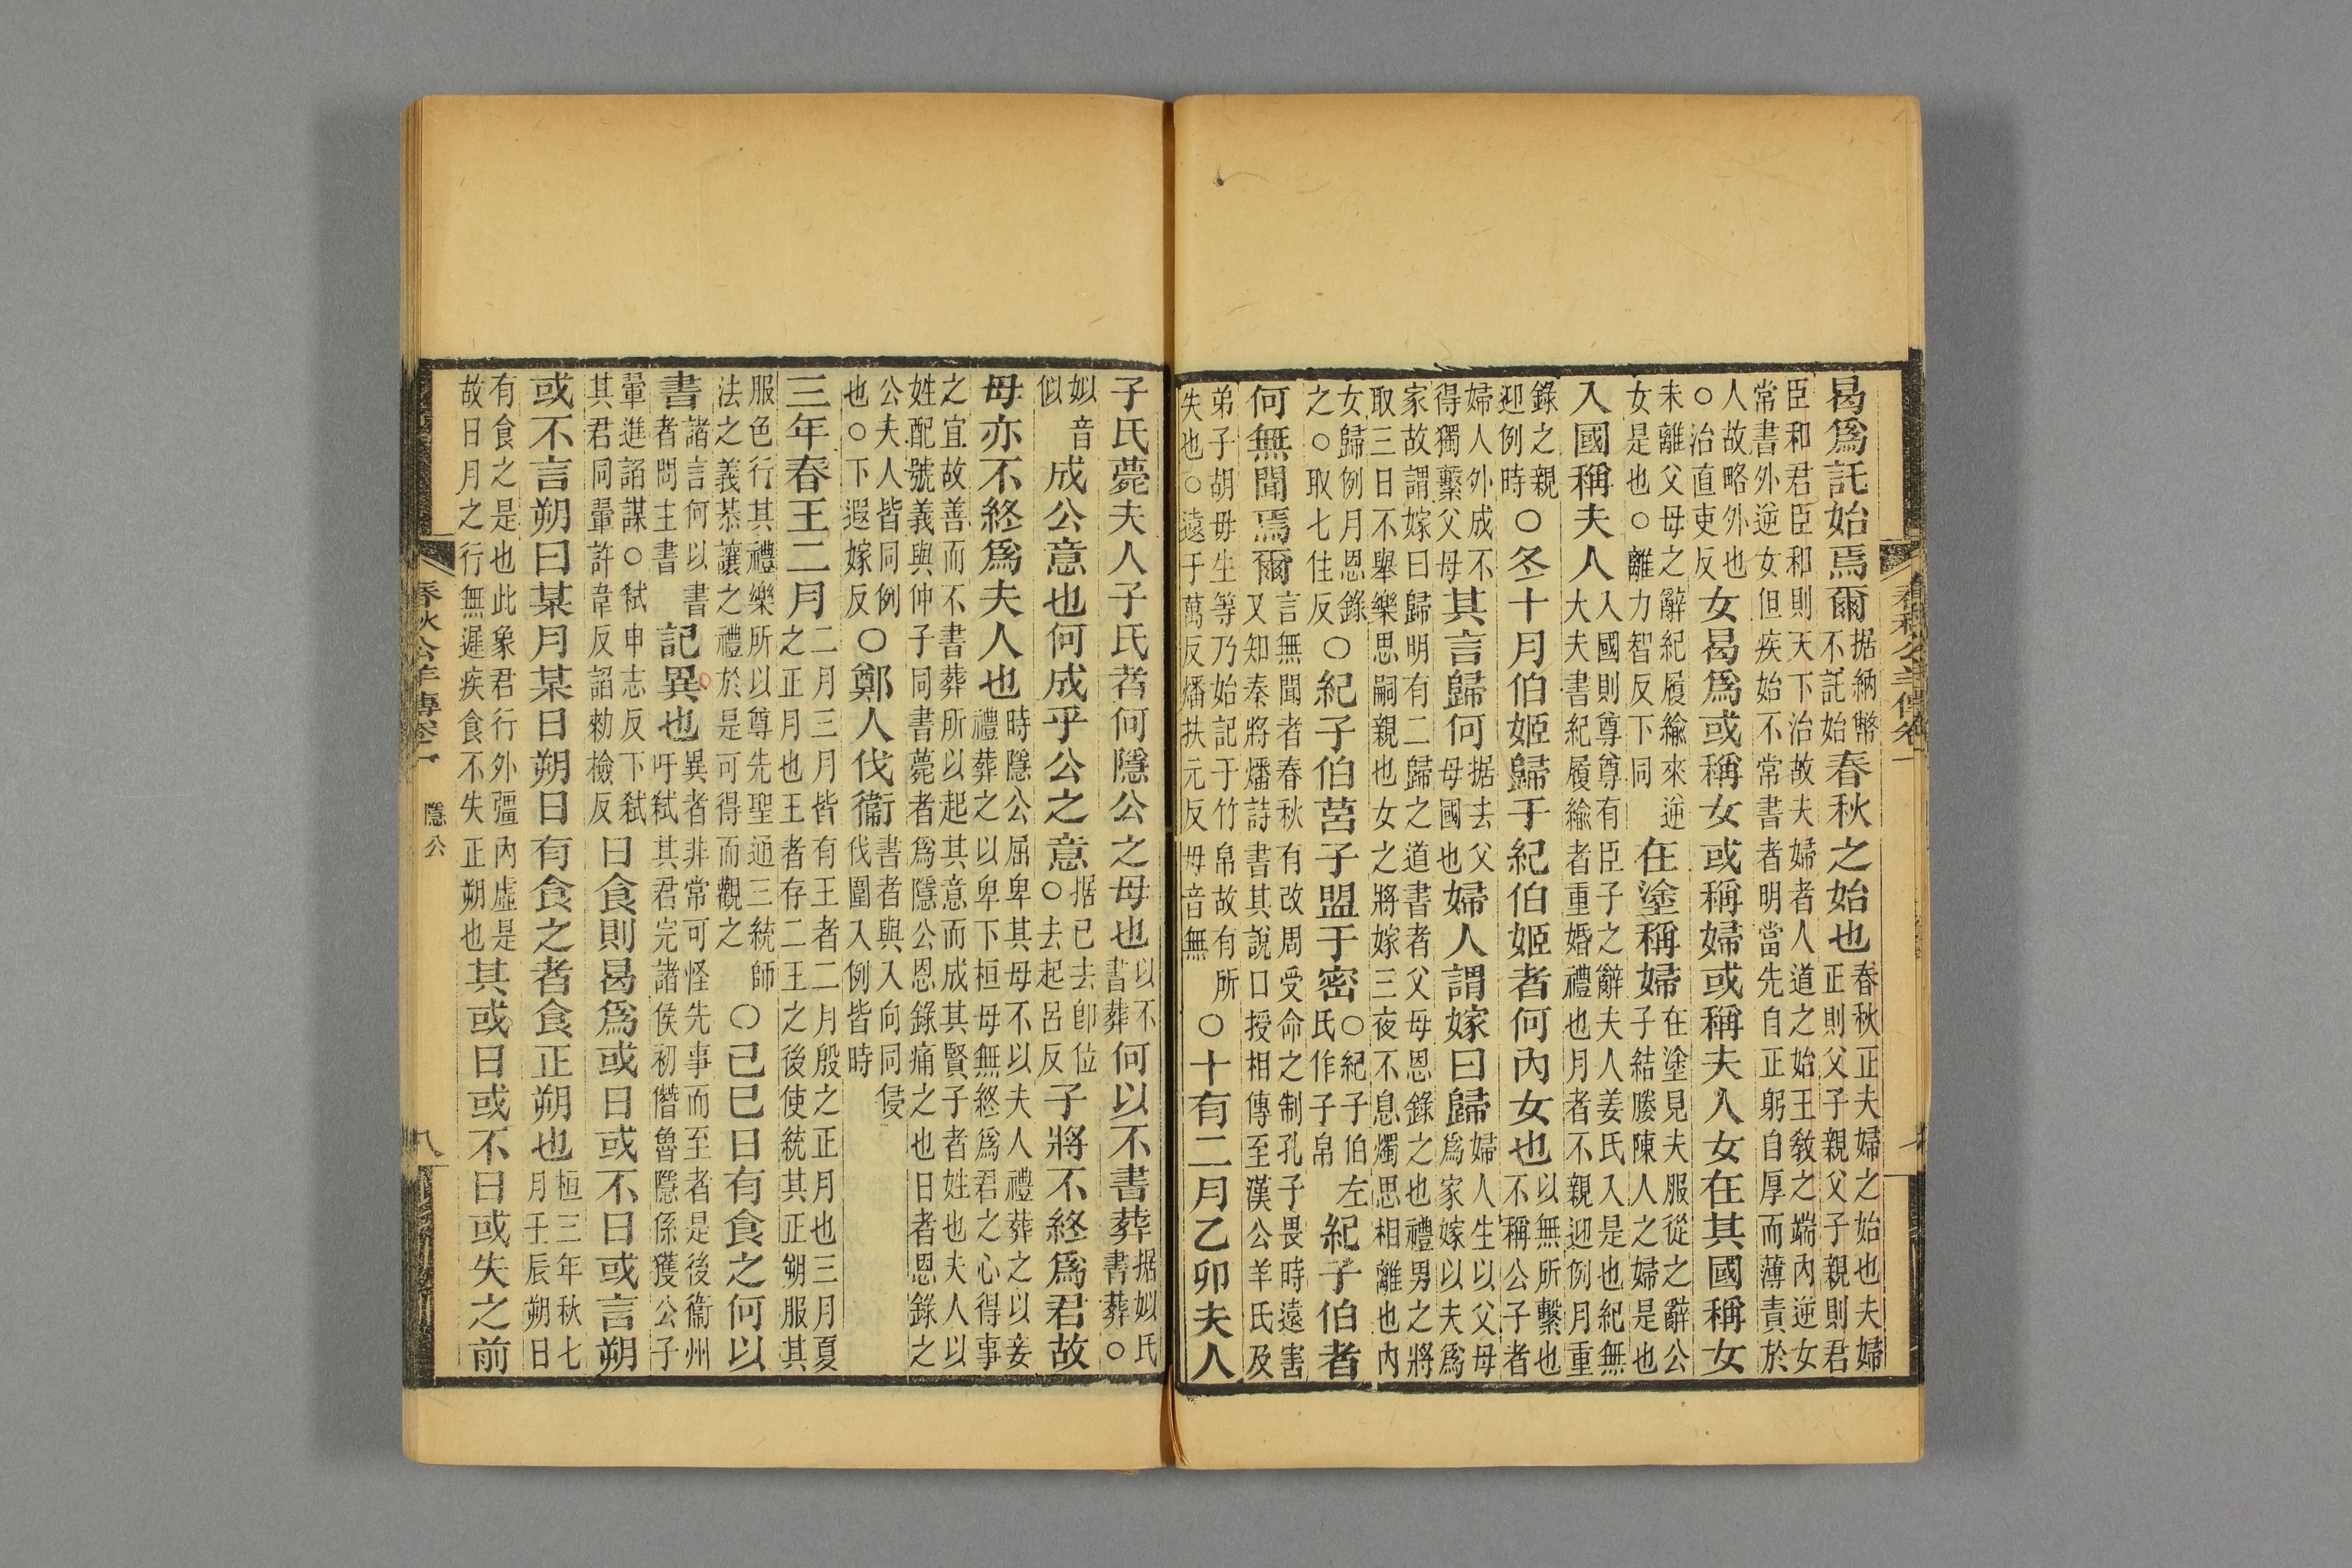 曷爲託始焉爾据納幣不託始春秋之始也春秋正夫婦之始也夫婦正則父子親父子親則君
臣和君臣和則天下治故夫婦者人道之始王敎之端內逆女常書外逆女但疾始不常書者明當先自正躬自厚而薄責於
人故略外也○治直吏反女曷爲或稱女或稱婦或稱夫人女在其國稱女
未離父母之辭紀履緰來逆女是也○離力智反下同在塗稱婦在塗見夫服從之辭公子結媵陳人之婦是也
入國稱夫人入國則尊尊有臣子之辭夫人姜氏入是也紀無大夫書紀履緰者重婚禮也月者不親迎例月重
錄之親迎例時○冬十月伯姬歸于紀伯姬者何內女也以無所繫也不稱公子者
婦人外成不得獨繫父母其言歸何据去父母國也婦人謂嫁曰歸婦人生以父母爲家嫁以夫爲
家故謂嫁曰歸明有二歸之道書者父母恩錄之也禮男之將取三日不舉樂思嗣親也女之將嫁三夜不息燭思相離也內
女歸例月恩錄之○取七住反○紀子伯莒子盟于密○紀子伯左氏作子帛紀子伯者
何無聞焉爾言無聞者春秋有改周受命之制孔子畏時遠害又知秦將燔詩書其說口授相傳至漢公羊氏及
弟子胡毋生等乃始記于竹帛故有所失也○遠于萬反燔扶元反毋音無○十有二月乙卯夫人
子氏薨夫人子氏者何隱公之母也以不書葬何以不書葬据姒氏書葬○
姒音似成公意也何成乎公之意据已去卽位○去起呂反子將不終爲君故
母亦不終爲夫人也時隱公屈卑其母不以夫人禮葬之以妾禮葬之以卑下桓母無終爲君之心得事
之宜故善而不書葬所以起其意而成其賢子者姓也夫人以姓配號義與仲子同書薨者爲隱公恩錄痛之也日者恩錄之
公夫人皆同例也○下遐嫁反○鄭人伐衞書者與入向同侵伐圍入例皆時
三年春王二月二月三月皆有王者二月殷之正月也三月夏之正月也王者存二王之後使統其正朔服其
服色行其禮樂所以尊先聖通三統師法之義恭讓之禮於是可得而觀之○己巳日有食之何以
書諸言何以書者問主書記異也異者非常可怪先事而至者是後衞州吁弑其君完諸侯初僭魯隱係獲公子
翬進諂謀○弑申志反下弑其君同翬許韋反諂勑檢反日食則曷爲或日或不日或言朔
或不言朔曰某月某日朔日有食之者食正朔也桓三年秋七月壬辰朔日
有食之是也此象君行外彊內虛是故日月之行無遲疾食不失正朔也其或日或不日或失之前
春秋公羊傳卷一 隱公 八